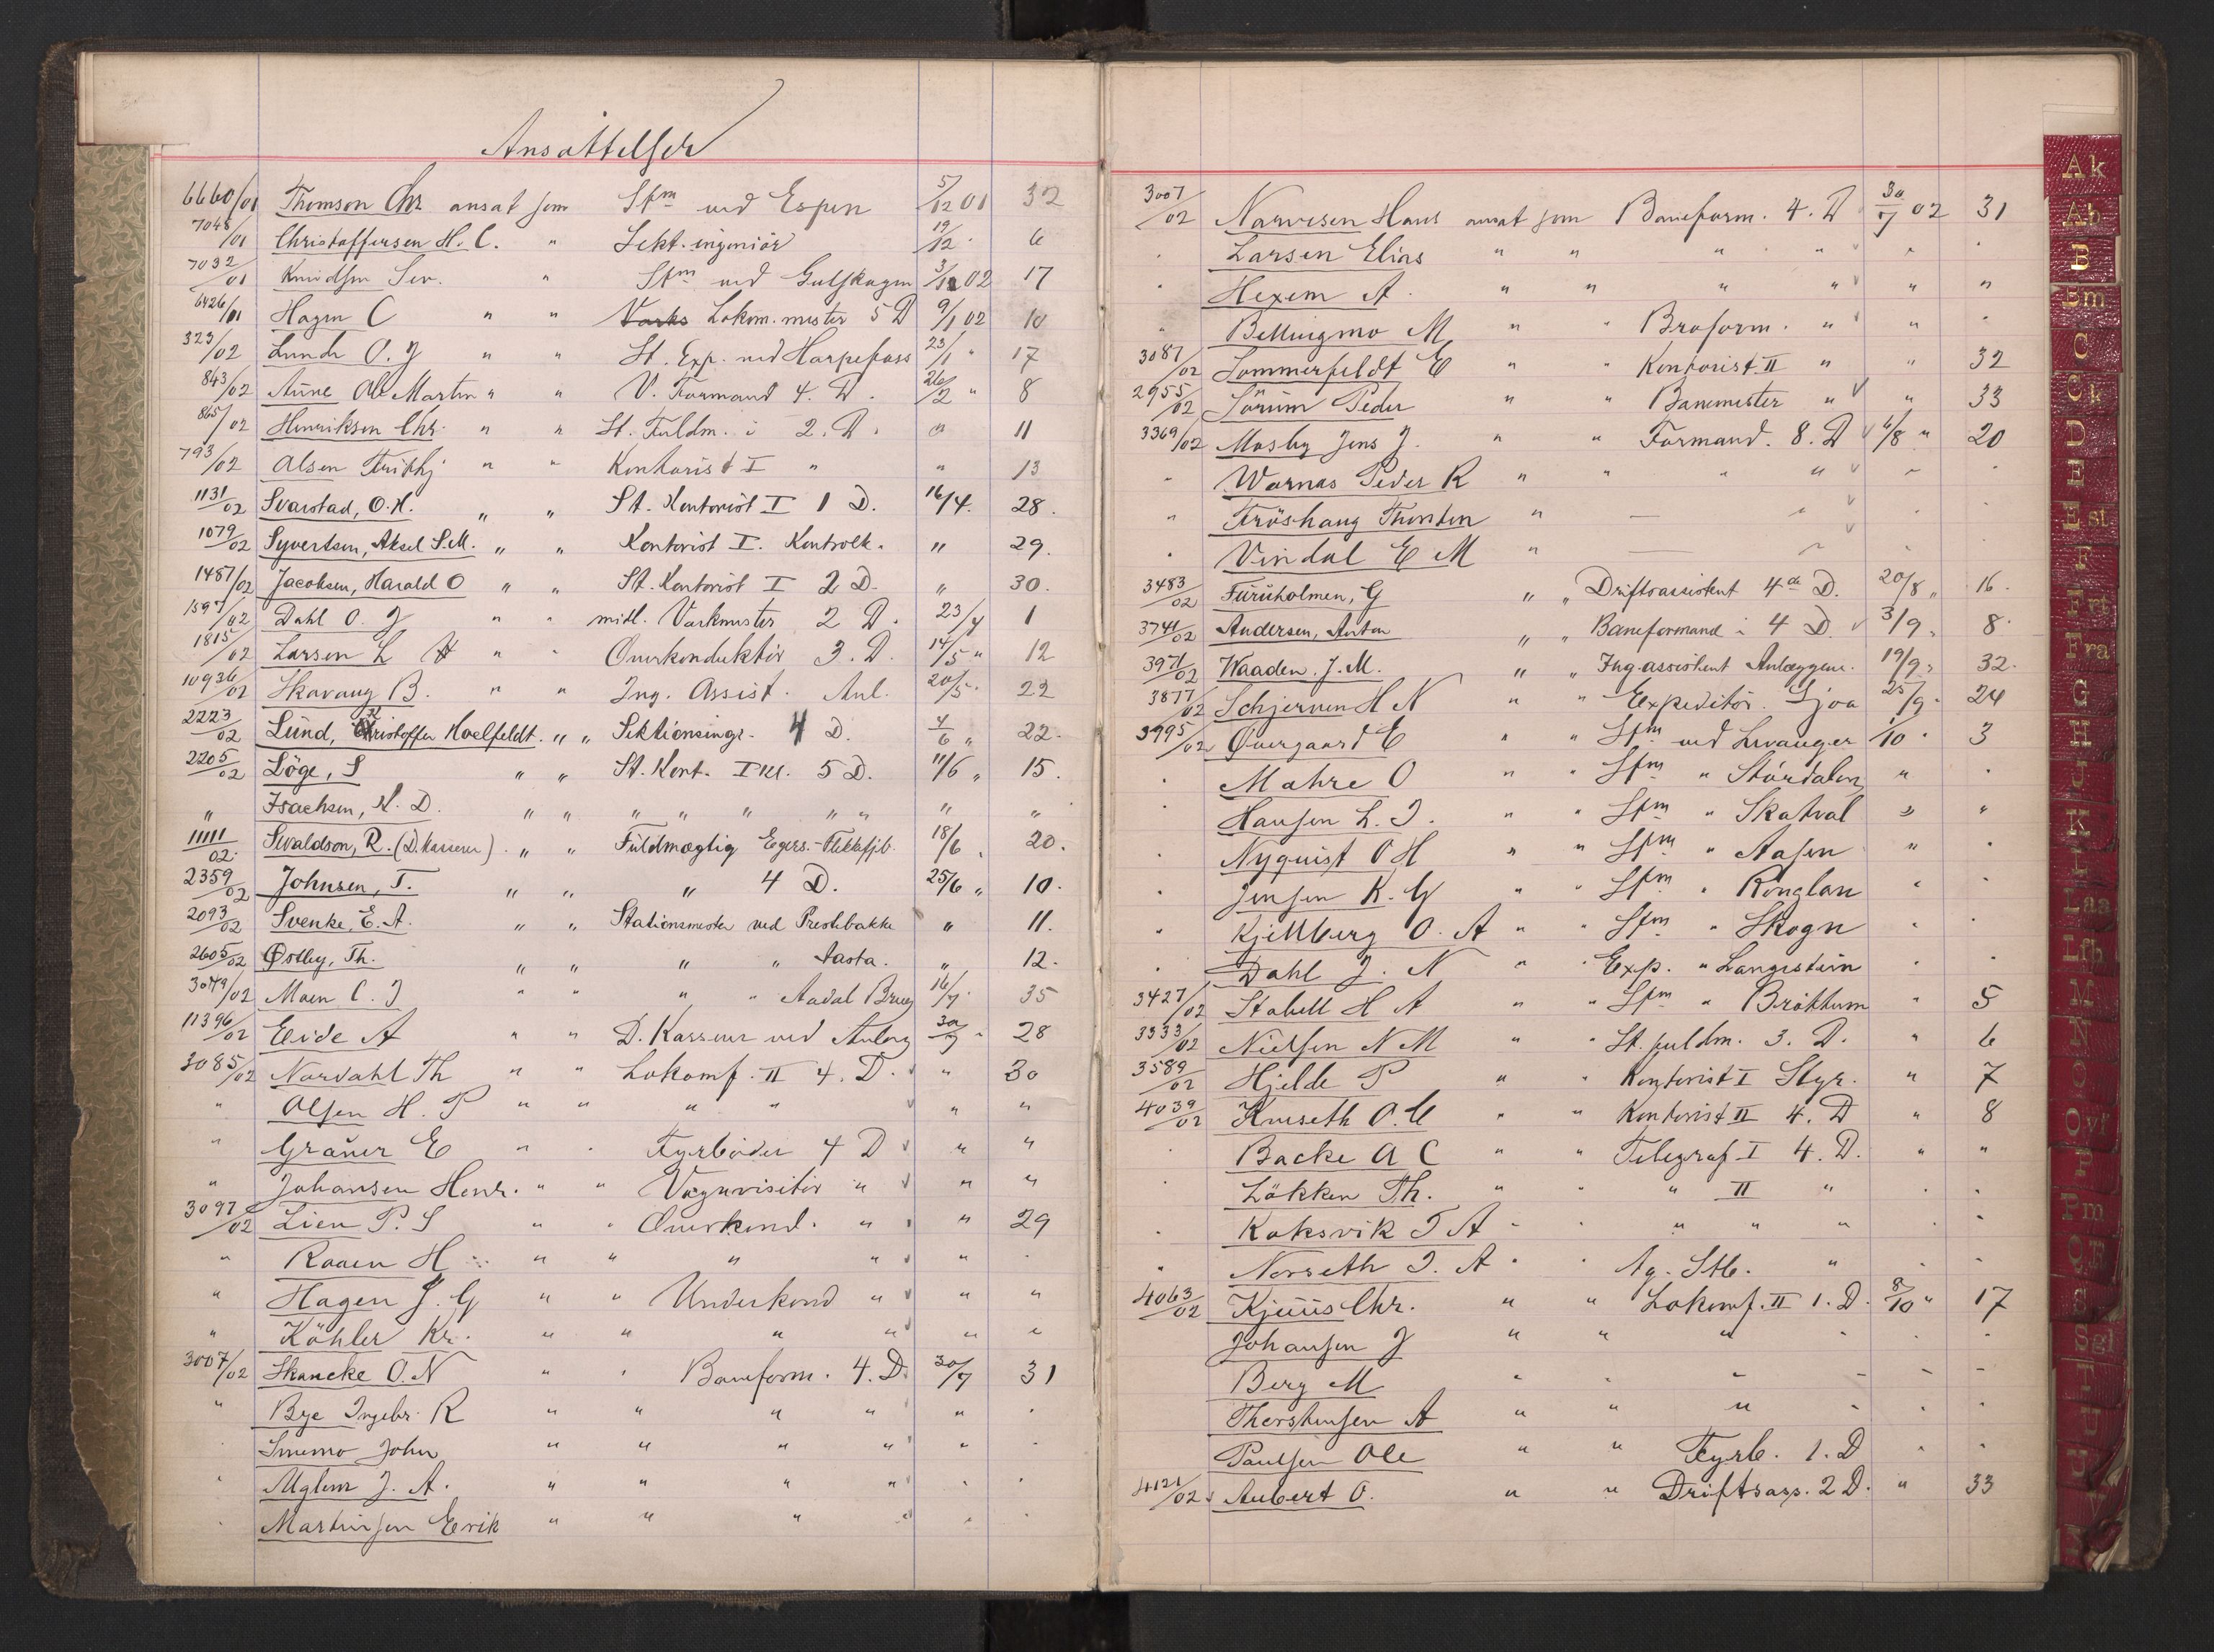 Ansættelser
6660/01 Thomson Chr ansat som Stm ved Espen 5/12 01 32
7048/01 Christoffersen H. C. " Sekt. ingeniör 19/12 " 6
7032/01 Knudsen Sev. " Stm ved Gulskogen 3/1 02 17
6426/01 Hagen C " " Lokom. mester 5 D 9/1 02 10
323/02 Lund O. J " " St. Exp. ved Harpefoss 23/1 " 17
843/02 Aune Ole Martin " " V. Formand 4. D. 26/2 " 8
865/02 Henriksen Chr. " " St. Fuldm. i 2. D. " 11
793/02 Olsen Frithj " " Kontorist I " " 13
1131/02 Svarstad, O. H. " " St. Kontorist I 1 D. 16/4. 28.
1079/02 Syvertsen, Aksel S.M. " " Kontorist I. Kontrolk. " 29.
1487/02 Jacobsen, Harald O " " St. Kontorist I 2 D. " 30.
1597/02 Dahl O. J " " midl. Værkmester 2 D. 23/4 1
1815/02 Larsen L " " Overkonduktör 3. D. 14/5 " 12
10936/02 Skavaug B. " " Ing. Assist. Anl. 20/5 " 22
2223/02 Lünd, Kristoffer Hoelfeldt. " " Sektionsingr. 4 D. 4/6 " 22.
2205/02 Löge, S " " St. Kont. I kl. 5 D. 11/6 " 15.
" Isachsen, N. D. " " " " " " " " "
11111/02. Sivaldson, R. (D. kasserer). " " Füldmægtig Egers.-Flekkefjb. 18/6 " 20.
2359/02 Johnsen, T. " " " 4 D. 25/6 " 10.
2093/02 Svenke, E. A. " " Stationsmester ved Prestebakke " 11.
2605/02 Østby, Th. " " " " Aasta. " 12.
3049/02 Moen C. J " " " " Aadal Brug 16/7 " 35
11396/02 Eide A " " D. Kasserer ved Anlæg 30/7 " 28
3085/02 Nordahl Th " " Lokomf. II 4. D. " 30
" Olsen H. P " " " " " "
" Graner E " " Fyrböder 4 D " "
" Johansen Henr. " " Vognvisitör " " "
3097/02 Lien P. S " " Overkond. " " 29
" Raaen H " " " " " "
" Hagen J. G " " Underkond " " "
" Köhler Kr. " " " " " "
3007/02 Skancke O. N " " Baneform. 4. D. 30/7 31
" Bye Ingebr. R " " " " " "
Snemo John " " " " " "
" Uglem J. A. " " " " " "
" Martinsen Eerik " " " " " "
3007/02 Narvesen Hans ansat som Baneform. 4. D 30/7 02 31
" Larsen Elias " " " " " "
" Hexem A. " " " " " "
" Bellingmo M " " Broform. " " "
3087/02 Sommerfeldt E " " Kontorist II " " 32
2955/02 Sörum Peder " " Banemester " " 33
3369/02 Mosby Jens J. " " Formand. 8. D 6/8 " 20
" Warnas Peder R " " " " " "
" Fröshaug Thorsten " — " " "
" Vindal E M " — " " "
3483/02 Füruholmen, G " " Driftsassistent 4de D. 20/8 " 16.
3741/02 Andersen, Anton " " Baneformand i 4 D. 3/9 " 8.
3971/02 Waaden. J. M. " " Ing. assistent Anlæggene. 19/9 " 32.
3877/02 Schjerven H N " " Expeditör. Sjoa 25/9 " 24
3995/02 Øvergaard E " " Stm ved Levanger 1/10 " 3
" Mæhre O " " Stm " Stördalen " "
" Hansen L. J. " " Stm " Skatval " "
" Nyquist O H " " Stm " Aasen " "
" Jensen K. G " " Stm " Ronglan " "
" Kjellberg O. A " " Stm " Skogn " "
" Dahl J. N " " Exp. " Langstein " "
3427/02 Stabell H A " " Stm " Bröttum " 5
3333/02 Nielsen N M " " St. fuldm. 3. D. " 6
3589/02 Hjelde P " " Kontorist I Styr. " 7
4039/02 Kneseth O. C " " Kontorist II 4. D " 8
" Backe A C " " Telegraf. I 4. D. " "
" Løkken Th. " " " II " " "
" Koksvik T A " " " " " " "
" Norseth J. A " " Ag. Stb. " " "
4063/02 Kjüüs Chr. " " Lokomf. II 1. D. 8/10 " 17
Johansen J " " " " " "
Berg M " " " " " "
Thorstensen A " " " " " "
Paulsen Ole " " Fyrb. 1. D " "
4121/02 Aubert O. " " Driftsass. 2 D. " 33
Ak
Ab
B
Bm
C
Ck
D
E
Est
F
Frt
Fva
G
H
J
K
L
Laa
Lfh
M
N
O
Ovf
P
Pm
Q
S
Sgl
T
U